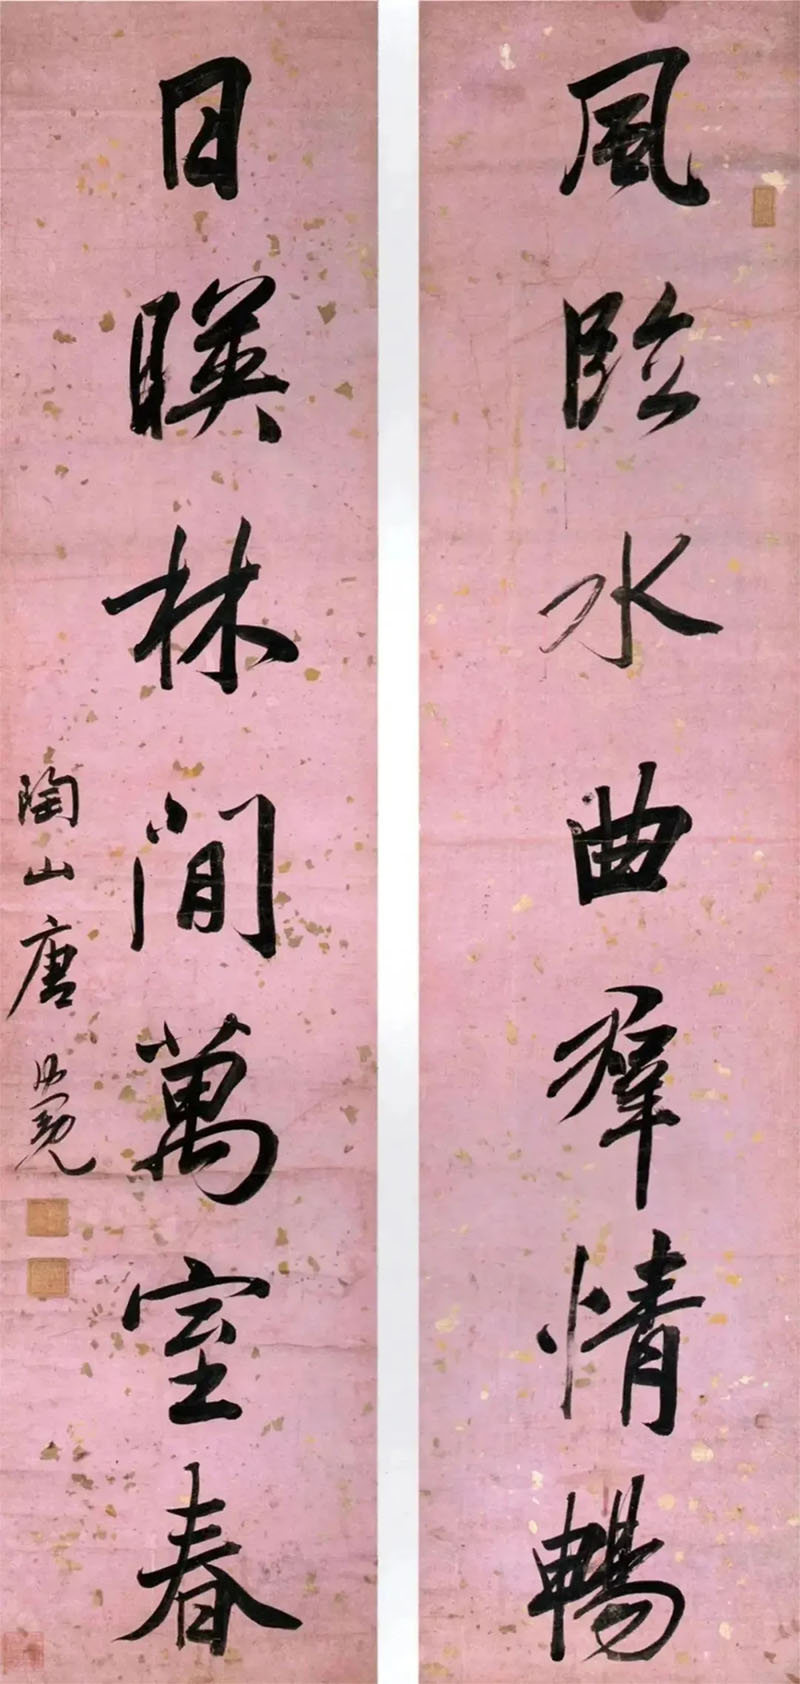 風臨水曲群情暢
日暎林間萬室春
陶山唐仲冕